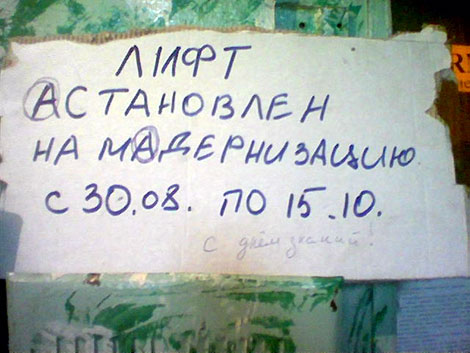 ЛИФТ
АСТАНОВЛЕН
НА МАДЕРНИЗАЦИЮ
С 30.08. ПО 15.10.
с днём знаний!